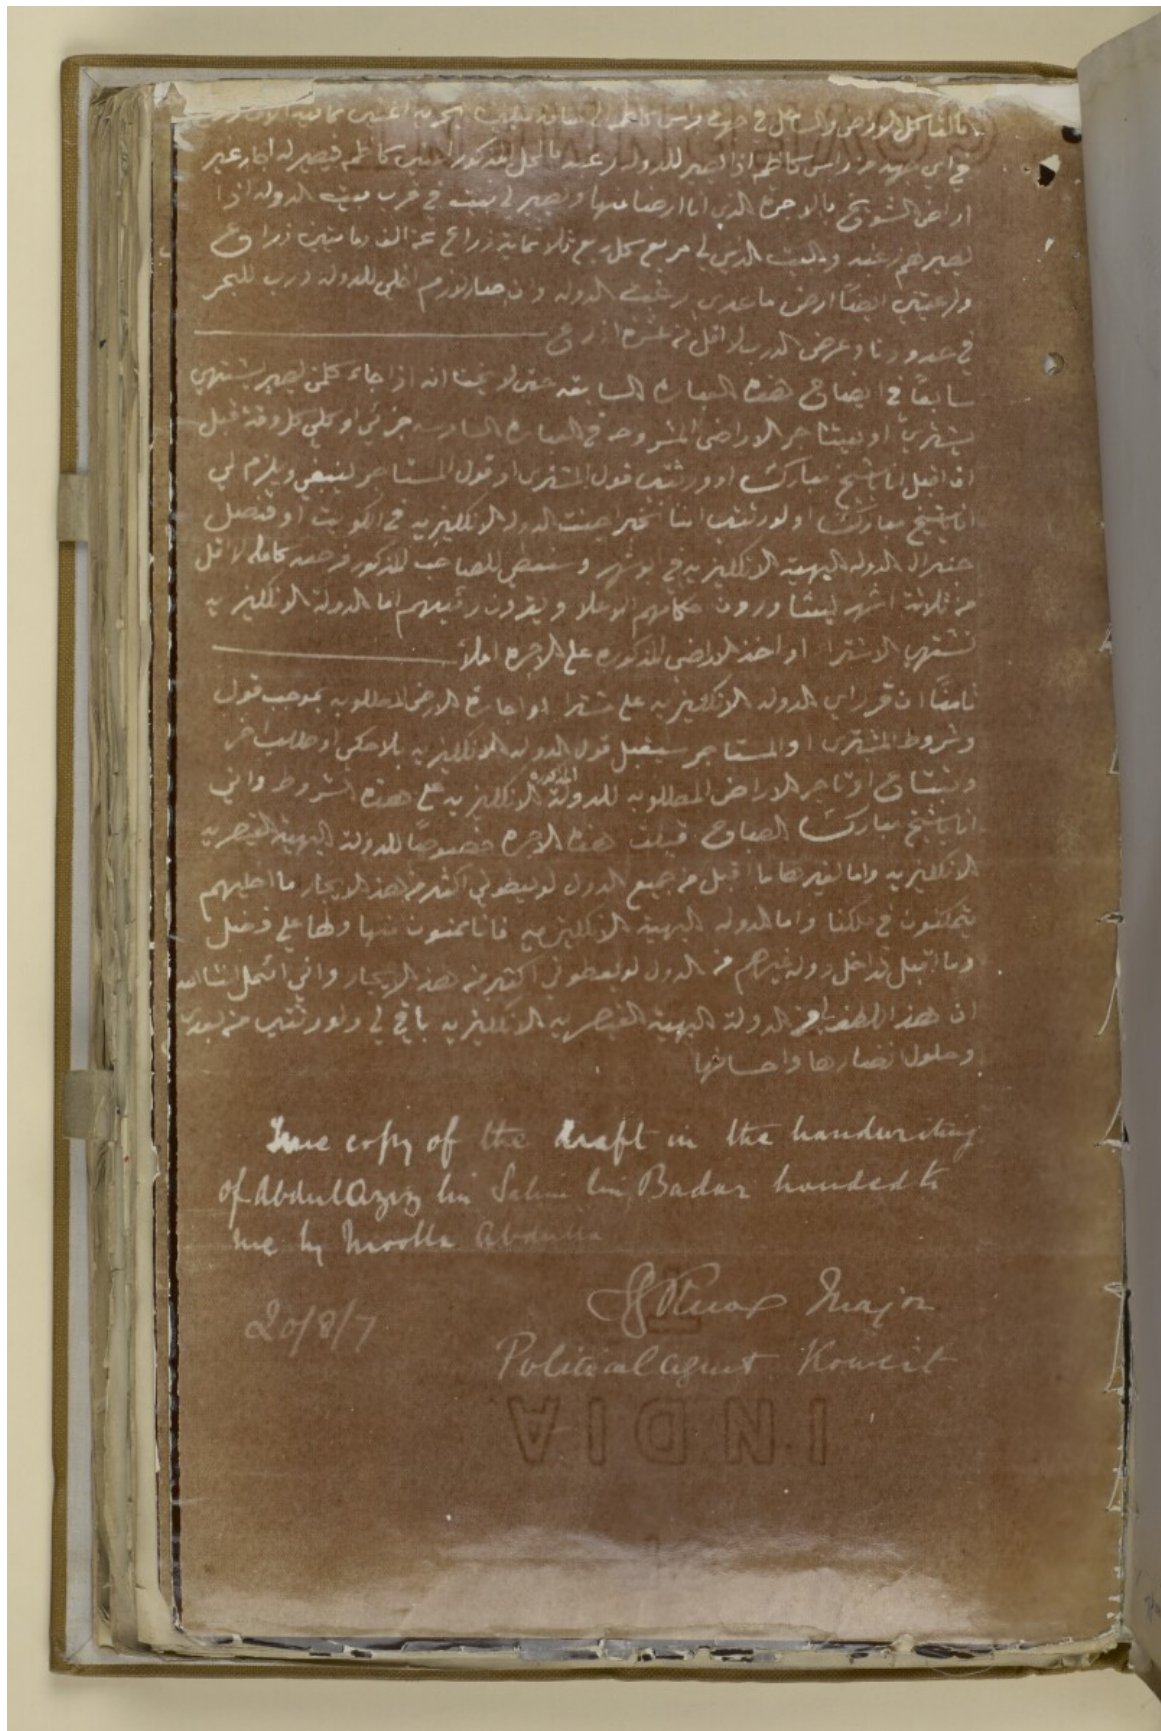 في اي جهة من راس كاظمه اذا يصير للدولة رغبه بالمحل المذكور اعني كاظمه فيصير له اجار غير
اراضي الشويخ بالاجرة الذي انا ارضا بها ويصير لي بيت في قرب بيت الدولة اذا
يصير لهم رغبه والبيت الذي لي مربع كل ربع ثلاثماية ذراع عن الف ومايتين ذراع
ورعيتي ايضًا ارض ما عدي رغبة الدولة وان صار لازم اخلي للدولة درب للبحر
في حدودنا وعرض الدرب لا اقل من عشرة اذرع
سابعًا في ايضاح هذه العبارة السابقه حتى لا يخفا انه اذا جاء كلمن يصير يشتهي
يشتري او يستاجر الاراضي المشروحة في العبارة السادسه جزئي او كلي كل وقت قبل
ان اقبل انا شيخ مبارك او ورثتي قول المشتري او قول المستاجر ينبغي ويلزم لي
انا شيخ مبارك او لورثتي اننا نخبر اجنت الدولة الانكليزيه في الكويت او قنصل
جنرال الدولة البهية الانكليزيه في بوشهر وسنعطي للصاحب المذكور فرصه كاملة لا اقل
من ثلاثة اشهر ليشاورون حكامهم الاعلا ويقرون رئيهم اما الدولة الانكليزيه
تشتهي الاشتراء او اخذ الاراضي المذكوره على الاجرة ام لا
ثامنًا ان قرر راي الدولة الانكليزيه على مشترا او اجارة الارض المطلوبه بموجب قول
وشروط المشتري او المستاجر سيقبل قول الدولة الانكليزيه بلا حكي او طلب اخر
وتبتاع او تاجر الاراضي المطلوبه للدولة المذكوره الانكليزيه على هذه الشروط واني
انا شيخ مبارك الصباح قبلت هذه الاجرة خصوصًا للدولة البهية القيصريه
الانكليزيه واما لغيرها ما اقبل من جميع الدول لو يعطوني اكثر من هذا الايجار ما اخليهم
يتمكنون في ملكنا واما الدولة البهية الانكليزيه فانا ممنون منها ولها علي فضل
وما اقبل تداخل دولة غيرهم من الدول لو يعطوني اكثر من هذا الايجار واني ائمل انشاالله
ان هذا اللطف من الدولة البهية القيصريه الانكليزيه باقي لي ولورثتي من بعدي
وحلول انضارها واحسانها
True copy of the draft in the handwriting
of Abdul Aziz bin Salim bin Badar handed to
me by Moolla Abdulla
SG Knox Major
20/8/7
Political Agent Koweit
INDIA